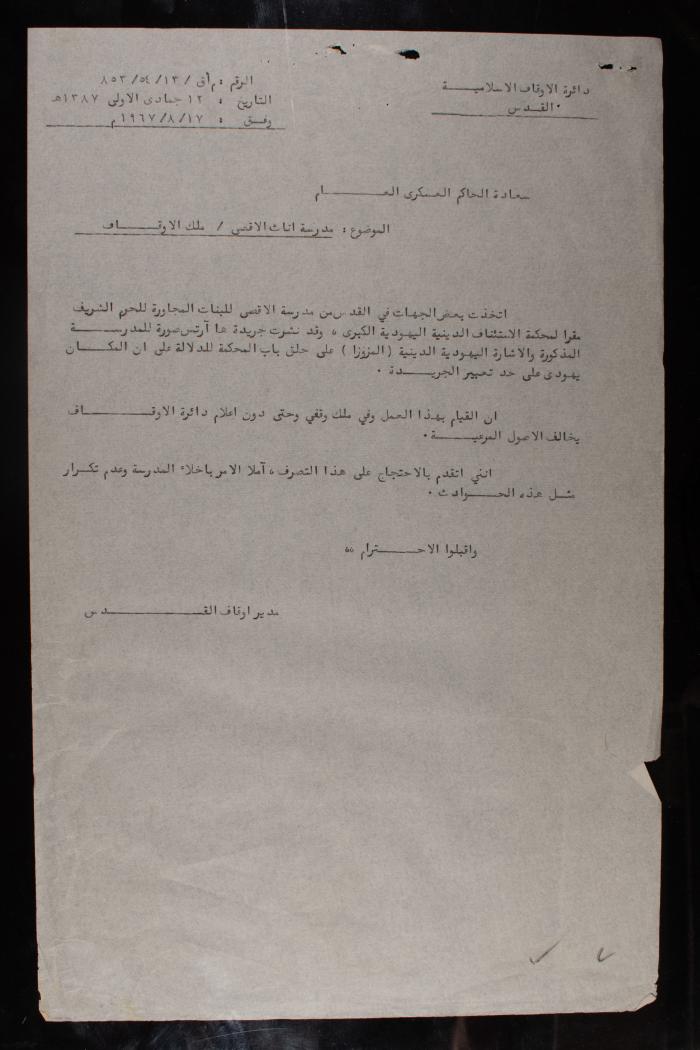 دائرة الاوقاف الاسلاميـــة
القـدس
الرقم : م أق / ١٣/ ٥٤/ ٨٥٣
التاريخ : ١٢ جمادى الاولى ١٣٨٧هـ
وفـق : ١٩٦٧/٨/١٧م
سعادة الحاكم العسكرى العـــــام
الموضوع : مدرسة اناث الاقصى / ملك الاوقـــاف
اتخذت بعض الجهات في القدس من مدرسة الاقصى للبنات المجاورة للحرم الشريف
مقرا لمحكمة الاستئناف الدينية اليهودية الكبرى ، وقد نشرت جريدة ها آرتس صورة للمدرســـة
المذكورة والاشارة اليهودية الدينية (المزوزا ) على حلق باب المحكمة للدلالة على ان المكـــان
يهودى على حد تعبير الجريـــدة .
ان القيام بهذا العمل وفي ملك وقفي وحتى دون اعلام دائرة الاوقــــاف
يخالف الاصول المرعيـــة .
انني اتقدم بالاحتجاج على هذا التصرف ، آملا الامر باخلاء المدرسة وعدم تكـرار
مثـل هذه الحـــوادث .
واقبلوا الاحـــترام ،،
مدير اوقاف القــــــدس